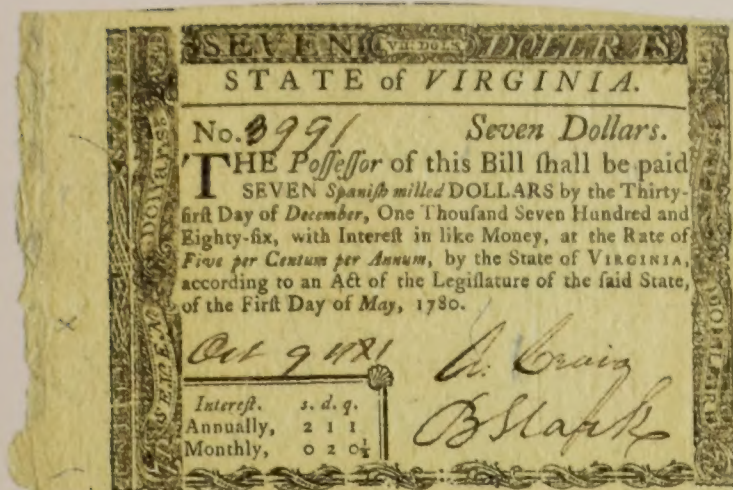 SEVEN VII DOLS DOLLRAS
STATE of VIRGINIA.
No. 3991 Seven Dollars.
THE Poſſeſſor of this Bill ſhall be paid
SEVEN Spaniſh milled DOLLARS by the Thirty-
firſt Day of December, One Thouſand Seven Hundred and
Eighty-ſix, with Intereſt in like Money, at the Rate of
Five per Centum per Annum, by the State of VIRGINIA,
according to an Act of the Legiſlature of the ſaid State,
of the Firſt Day of May, 1780.
Oct 9 1781
A. Craig
B Stark
Intereſt. s. d. q.
Annually, 2 1 1
Monthly, 0 2 0½
SEVEN Dollars